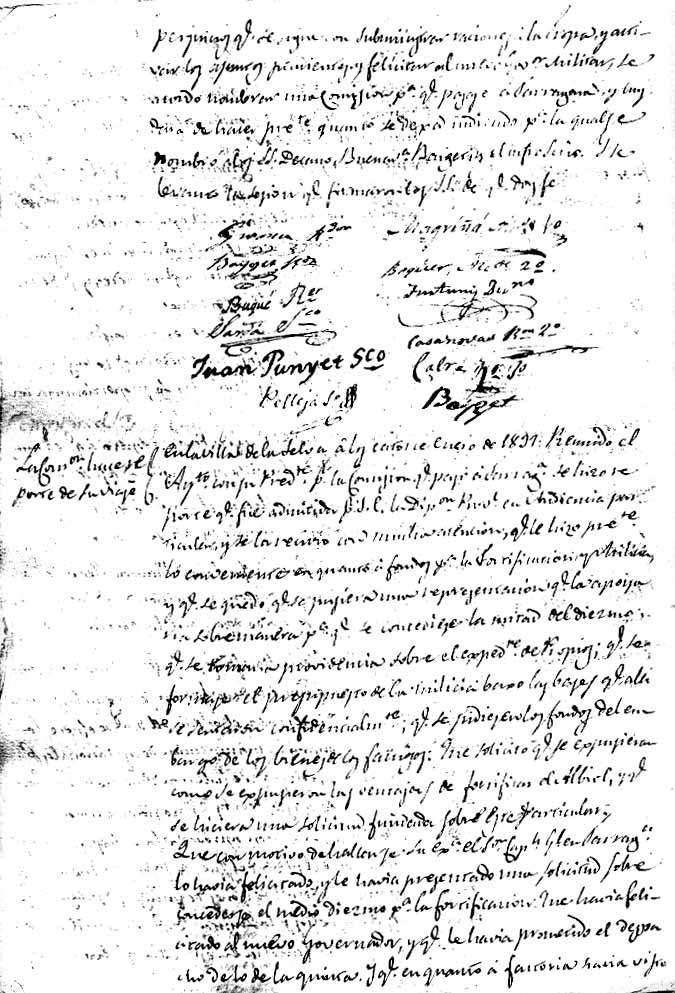 perjuicios q.e se siguen en subministrar raciones á la tropa, y acti-
var los asuntos pendientes y felicitar al nuevo Gov.or Militar, se
acordó nombrar una Comision p.a q.e pasase á Tarragona, y lug
de haver pre.te quanto se dexa indicado p.a la qual se
nombró á los SS. Decano, Buenav.a Baiges y el infro Srio. Y se
levantó la sesion q.e firmaron los SS. de q.e doy fe
Magriñá
Bayget
Boquer, Alc.e 2.o
Buqué R.or
Fortuny
Casanovas R.or 2.o
Juan Punyet Sco
Cabré
Pellejà
Bayget
La Com.on hace re
porte de su viaje
En la villa de la Selva á los catorce Enero de 1837. Reunido el
Ay.to con su Presid.te p.r la Comision q.e pasó á Tarrag.a se hizo re
porte q.e fue admitida p.r S.E. la Dip.on Prov.l en Audiencia par-
ticular, y se la recivió con mucha atencion, q.e le hizo pre.te
lo conveniente en quanto á fondos p.a la fortificacion y Milicia,
y q.e se quedó q.e se pusiera una representacion q.e la apoya
ria sobremanera p.a q.e se concediese la mitad del diezmo;
q.e se tomaria providencia sobre el exped.te de Propios; q.e se
formase el presupuesto de la milicia baxo las bases q.e alli
se dieron confidencialm.te; q.e se pidiesen los fondos del em
bargo de los bienes de los facciosos: Que solicitó q.e se expusieran
como se expusieron las ventajas de fortificar el Albiol, y q.e
se hiciera una solicitud fundada sobre este particular,
Que con motivo de hallarse Su Ex.a el S.or Cap.n Gl en Tarrag.a
lo havia felicitado, y le havia presentado una solicitud sobre
concederse el medio diezmo p.a la fortificacion. Que havia feli-
citado al nuevo Governador, y q.e le havia prometido el despa
cho de lo de la quinta. Y q.e en quanto á factoria havia visto